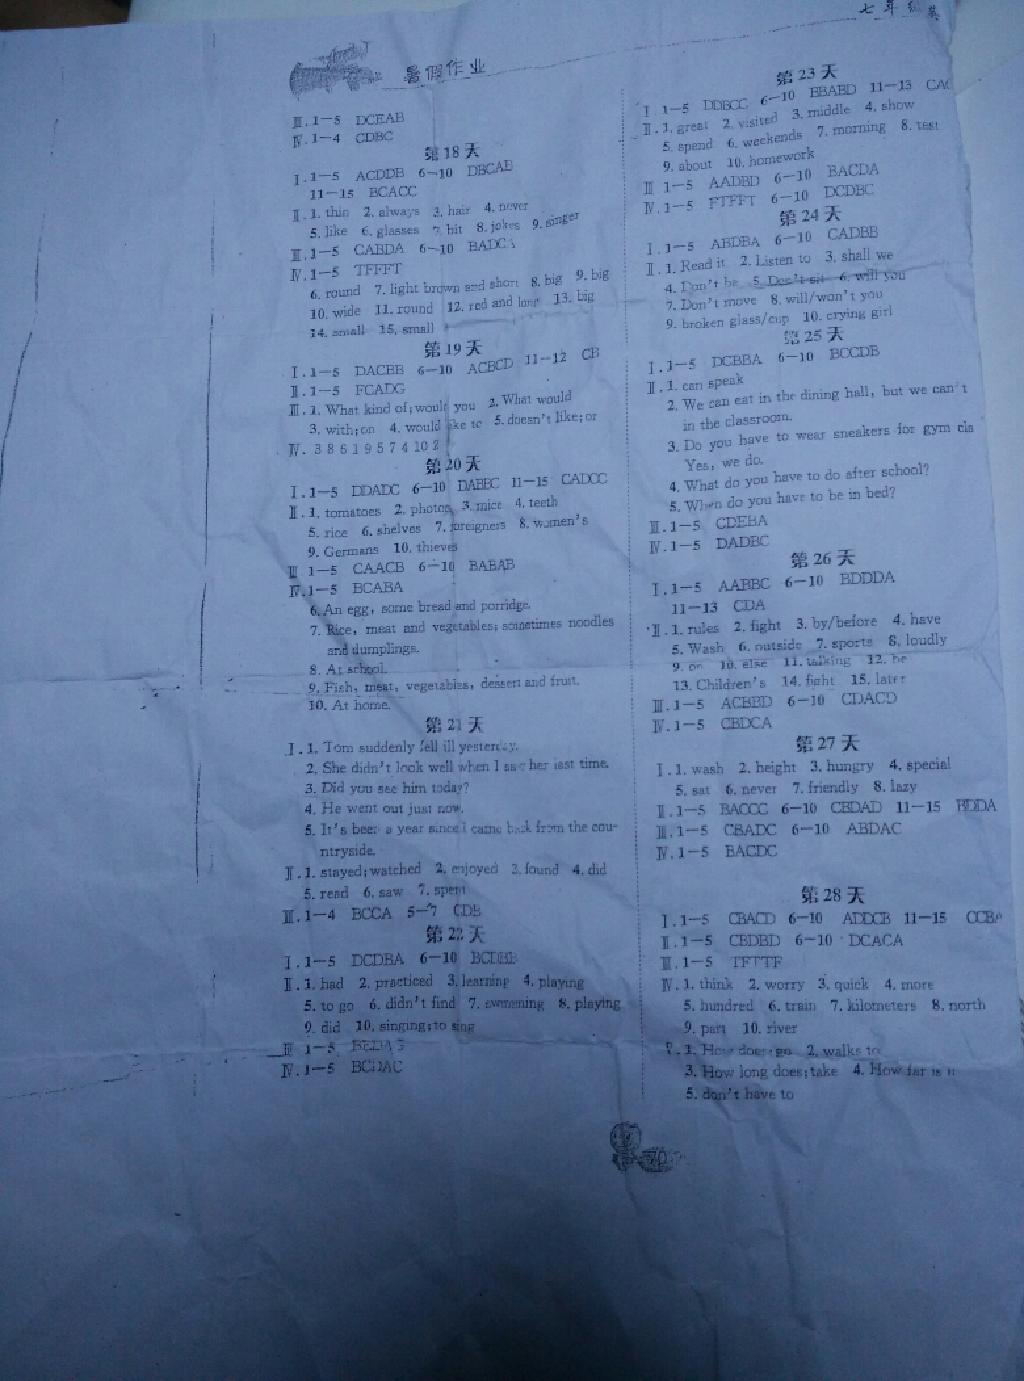 暑假作业
七年级英
Ⅲ.1—5 DCEAB
Ⅳ.1—4 CDBC
第18天
Ⅰ.1—5 ACDDB 6—10 DBCAB
11—15 BCACC
Ⅱ.1. thin 2. always 3. hair 4. never
5. like 6. glasses 7. hit 8. jokes 9. singer
Ⅲ.1—5 CABDA 6—10
Ⅳ.1—5 TFFFT
6. round 7. light brown and short 8. big 9. big
10. wide 11. round 12. red and long 13. big
14. small 15. small
第19天
Ⅰ.1—5 DACBB 6—10 ACBCD 11—12 CB
Ⅱ.1—5 FCADG
Ⅲ.1. What kind of; would you 2. What would
3. with; on 4. would like to 5. doesn't like; or
Ⅳ. 3 8 6 1 9 5 7 4 10 2
第20天
Ⅰ.1—5 DDADC 6—10 DABBC 11—15 CADCC
Ⅱ.1. tomatoes 2. photos 3. mice 4. teeth
5. rice 6. shelves 7. foreigners 8. women's
9. Germans 10. thieves
Ⅲ 1—5 CAACB 6—10 BABAB
Ⅳ.1—5 BCABA
6. An egg, some bread and porridge.
7. Rice, meat and vegetables; sometimes noodles
and dumplings.
8. At school.
9. Fish, meat, vegetables, dessert and fruit.
10. At home.
第21天
Ⅰ.1. Tom suddenly fell ill yesterday.
2. She didn't look well when I saw her last time.
3. Did you see him today?
4. He went out just now.
5. It's been a year since I came back from the cou-
ntryside.
Ⅱ.1. stayed; watched 2. enjoyed 3. found 4. did
5. read 6. saw 7. spent
Ⅲ.1—4 BCCA 5—7 CDB
第22天
Ⅰ.1—5 DCDBA 6—10
Ⅱ.1. had 2. practiced 3. learning 4. playing
5. to go 6. didn't find 7. swimming 8. playing
9. did 10. singing; to sing
Ⅲ 1—5
Ⅳ.1—5 BCDAC
第23天
Ⅰ 1—5 DDBCC 6—10 BBABD 11—13 CAC
Ⅱ.1. great 2. visited 3. middle 4. show
5. spend 6. weekends 7. morning 8. test
9. about 10. homework
Ⅲ 1—5 AADBD 6—10 BACDA
Ⅳ.1—5 FTFFT 6—10 DCDBC
第24天
Ⅰ.1—5 ABDBA 6—10 CADBB
Ⅱ.1. Read it 2. Listen to 3. shall we
4. Don't be 5. Don't sit 6. will you
7. Don't move 8. will/won't you
9. broken glass/cup 10. crying girl
第25天
Ⅰ.1—5 DCBBA 6—10 BCCDB
Ⅱ.1. can speak
2. We can eat in the dining hall, but we can't
in the classroom.
3. Do you have to wear sneakers for gym cla
Yes, we do.
4. What do you have to do after school?
5. When do you have to be in bed?
Ⅲ.1—5 CDEBA
Ⅳ.1—5 DADBC
第26天
Ⅰ.1—5 AABBC 6—10 BDDDA
11—13 CDA
Ⅱ.1. rules 2. fight 3. by/before 4. have
5. Wash 6. outside 7. sports 8. loudly
9. on 10. else 11. talking 12. be
13. Children's 14. fight 15. later
Ⅲ.1—5 ACBBD 6—10 CDACD
Ⅳ.1—5 CBDCA
第27天
Ⅰ.1. wash 2. height 3. hungry 4. special
5. sat 6. never 7. friendly 8. lazy
Ⅱ.1—5 BACCC 6—10 CBDAD 11—15 BDDA
Ⅲ.1—5 CBADC 6—10 ABDAC
Ⅳ.1—5 BACDC
第28天
Ⅰ.1—5 CBACD 6—10 ADDCB 11—15 CCBA
Ⅱ.1—5 CBDBD 6—10 DCACA
Ⅲ.1—5 TFTTF
Ⅳ.1. think 2. worry 3. quick 4. more
5. hundred 6. train 7. kilometers 8. north
9. part 10. river
1. How does; go 2. walks to
3. How long does; take 4. How far is it
5. don't have to
70